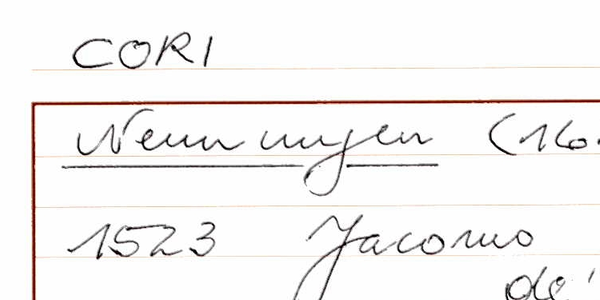 CORI
Nennungen (16.
1523 Jacomo
de'